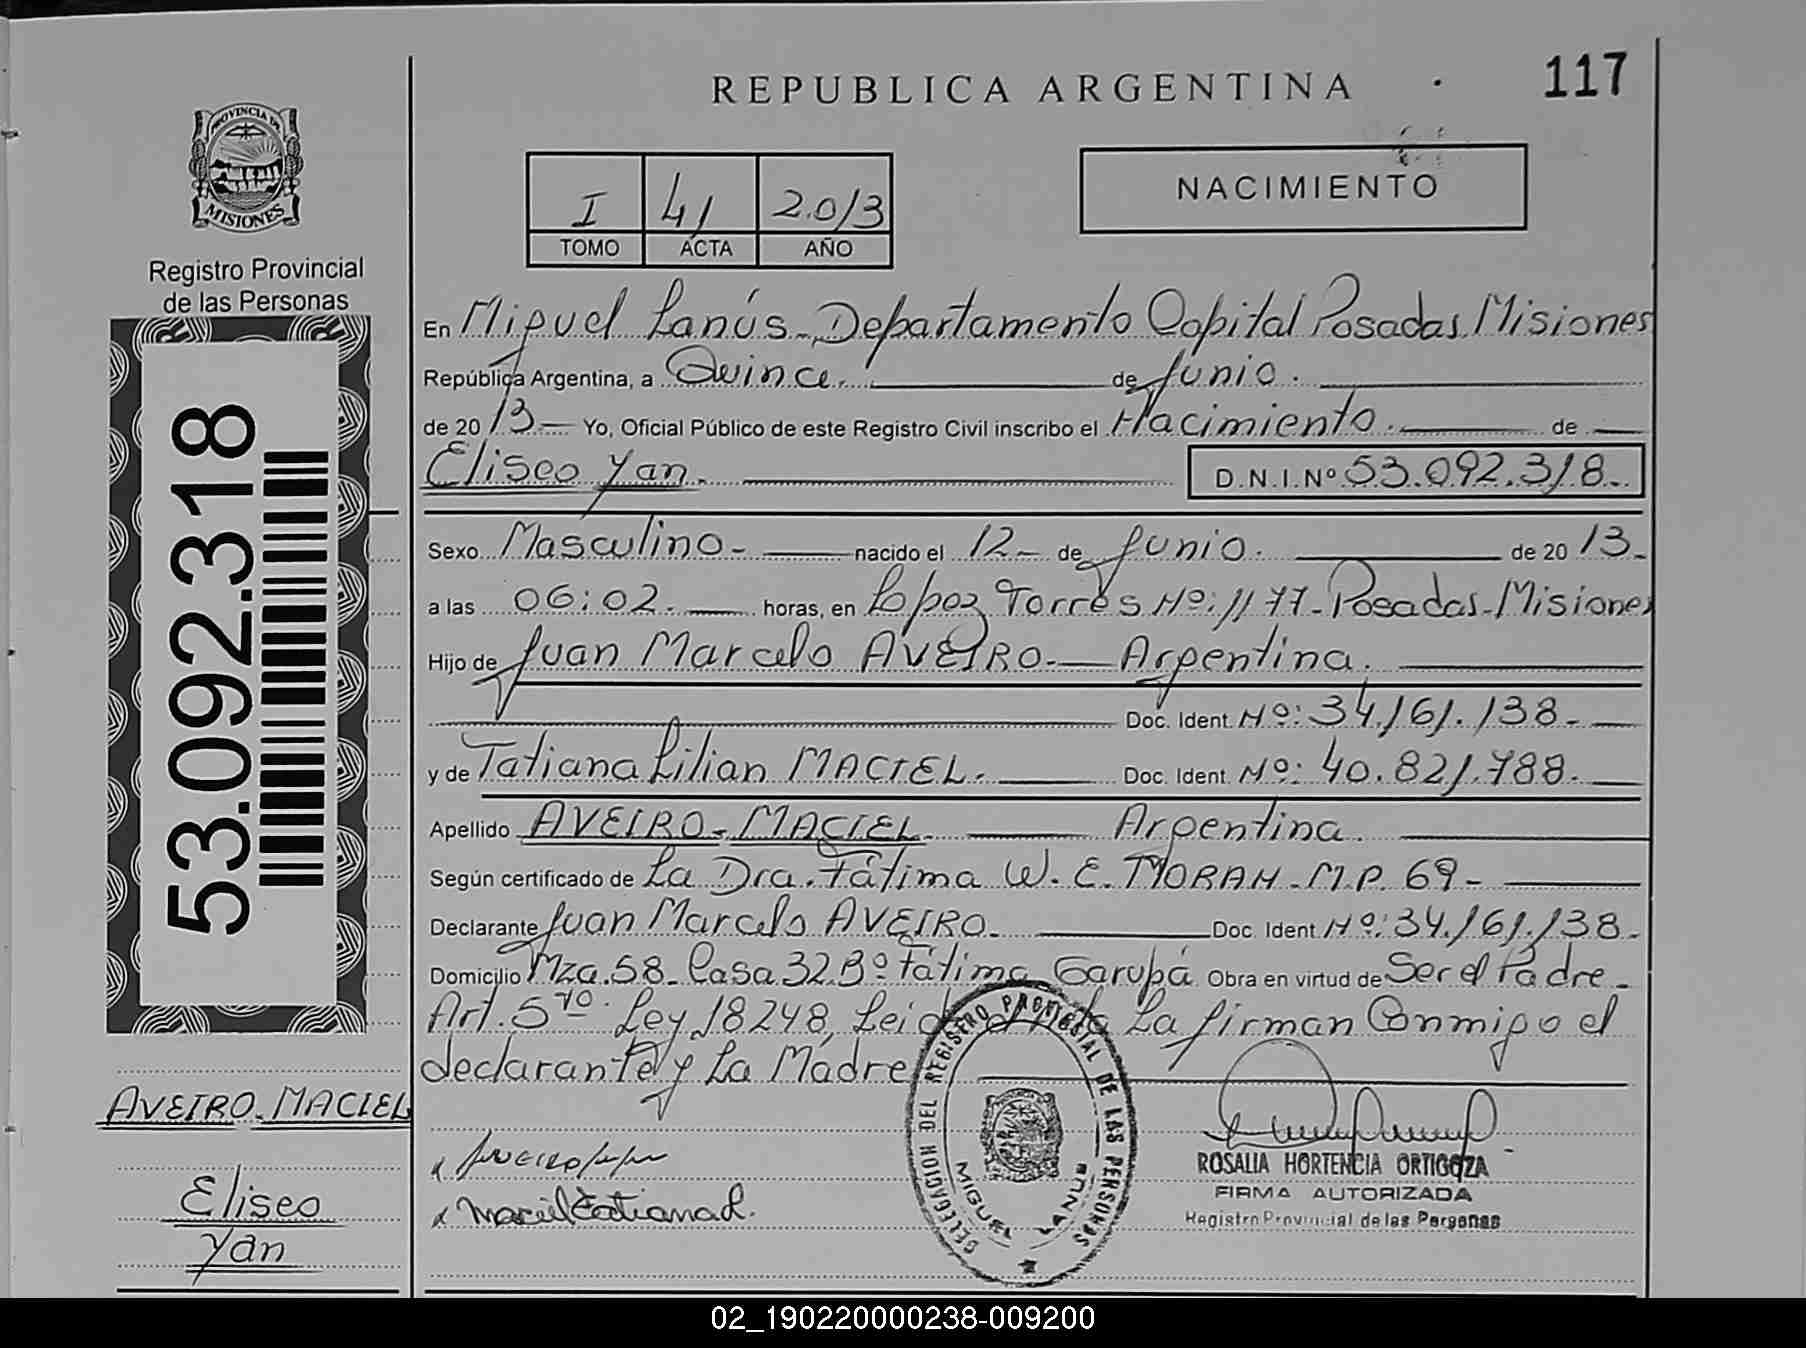 REPUBLICA ARGENTINA
117
PROVINCIA DE
MISIONES
Registro Provincial
de las Personas
I 41 2.013
TOMO ACTA AÑO
NACIMIENTO
53.092.318
En Miguel Lanús - Departamento Capital Posadas Misiones
República Argentina, a Quince. de Junio.
de 2013 - Yo, Oficial Público de este Registro Civil inscribo el Nacimiento. de
Eliseo Yan. D.N.I.Nº 53.092.318.
Sexo Masculino - nacido el 12 - de Junio. de 2013 -
a las 06:02. horas, en Lopez Torres Nº: 1177 - Posadas - Misiones
Hijo de Juan Marcelo AVEIRO - Argentina.
Doc. Ident. Nº: 34.161.138 -
y de Tatiana Lilian MACIEL. Doc. Ident. Nº: 40.821.788.
Apellido AVEIRO - MACIEL. Argentina.
Según certificado de La Dra. Fátima W. E. MORAN - M.P. 69 -
Declarante Juan Marcelo AVEIRO. Doc. Ident. Nº: 34.161.138.
Domicilio Mza. 58 - Casa 32 Bº Fátima Garupá Obra en virtud de Ser el Padre -
Art. 5to. Ley 18248, La firman Conmigo el
declarante y La Madre
AVEIRO - MACIEL
Eliseo
Yan
x Maciel Tatiana L.
DELEGACION DEL REGISTRO PROVINCIAL DE LAS PERSONAS
MIGUEL LANUS
ROSALIA HORTENCIA ORTIGOZA
FIRMA AUTORIZADA
Registro Provincial de las Personas
02_190220000238-009200